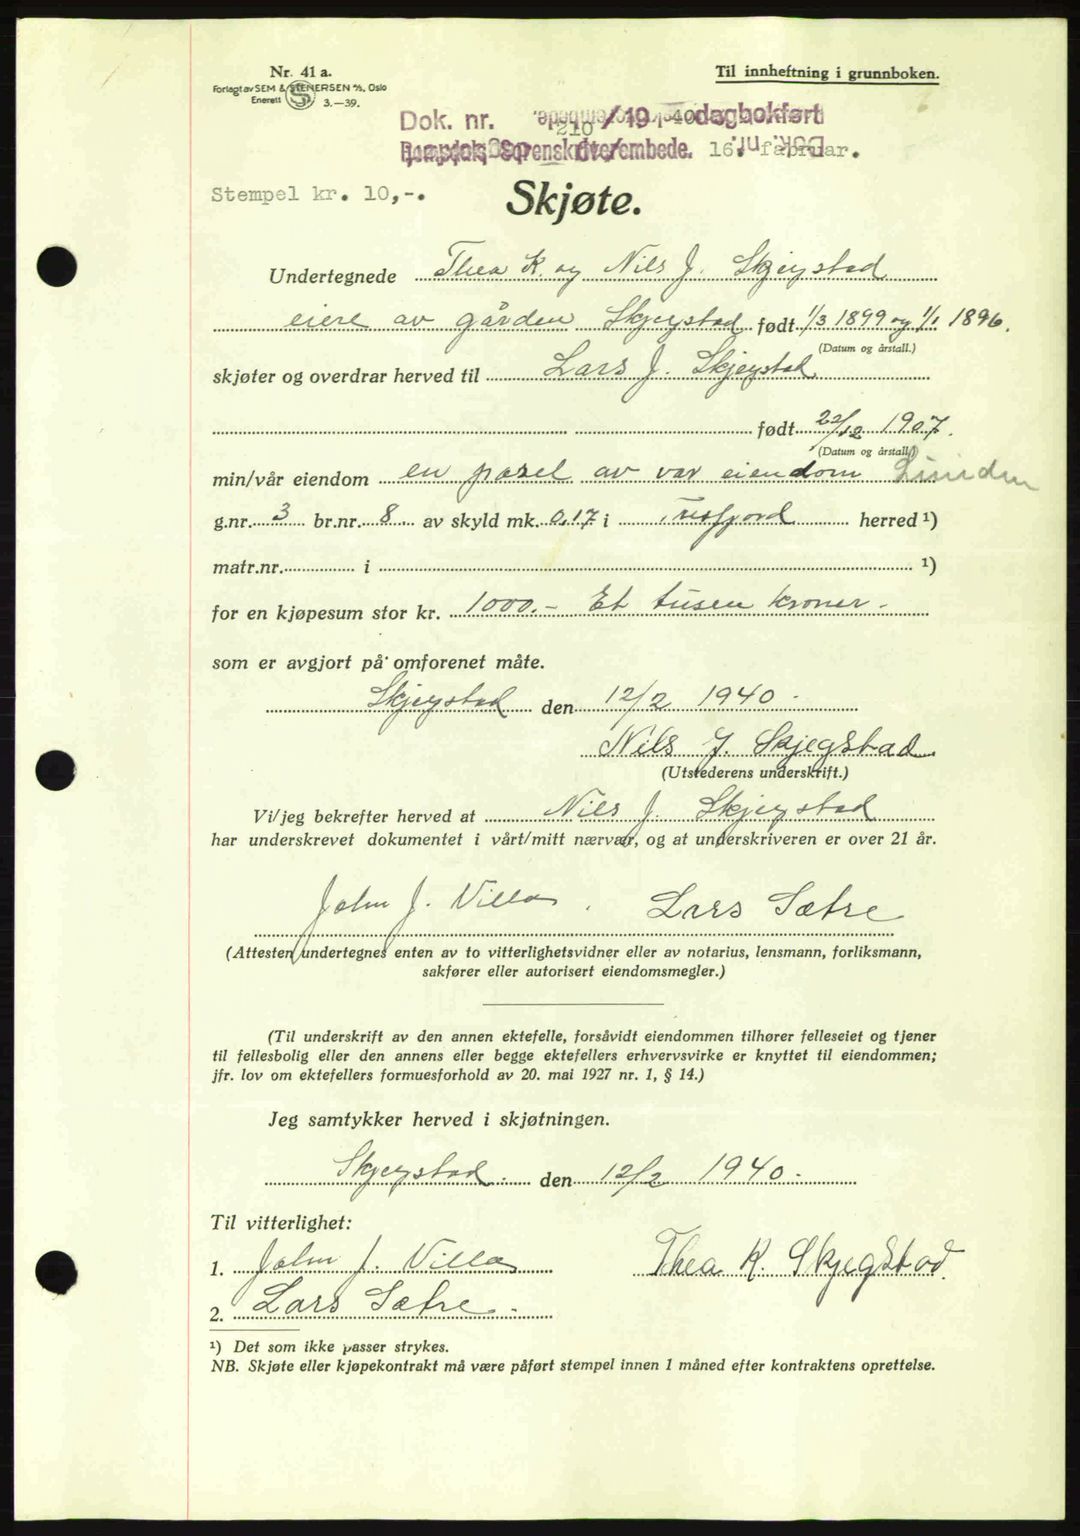 Nr. 41 a.
Forlagt av SEM & STENERSEN A/S, Oslo
Enerett 3.—39.
Til innheftning i grunnboken.
Dok. nr. 210 / 19 40 dagbokført
Sorenskriverembede. 16. februar.
Stempel kr. 10,-.
Skjøte.
Undertegnede Thea K. og Nils J. Skjegstad
eiere av gården Skjegstad født 1/3 1899 og 1/1 1896.
(Datum og årstall.)
skjøter og overdrar herved til Lars J. Skjegstad
født 22/12 1907.
(Datum og årstall.)
min/vår eiendom en parsel av vår eiendom
g.nr. 3 br.nr. 8 av skyld mk. 0,17 i Tresfjord herred ¹)
matr.nr. i ¹)
for en kjøpesum stor kr. 1000.- Et tusen kroner.
som er avgjort på omforenet måte.
Skjegstad den 12/2 1940.
Nils J. Skjegstad
(Utstederens underskrift.)
Vi/jeg bekrefter herved at Nils J. Skjegstad
har underskrevet dokumentet i vårt/mitt nærvær, og at underskriveren er over 21 år.
John J. Villa. Lars Sætre
(Attesten undertegnes enten av to vitterlighetsvidner eller av notarius, lensmann, forliksmann,
sakfører eller autorisert eiendomsmegler.)
(Til underskrift av den annen ektefelle, forsåvidt eiendommen tilhører felleseiet og tjener
til fellesbolig eller den annens eller begge ektefellers erhvervsvirke er knyttet til eiendommen;
jfr. lov om ektefellers formuesforhold av 20. mai 1927 nr. 1, § 14.)
Jeg samtykker herved i skjøtningen.
Skjegstad. den 12/2 1940.
Til vitterlighet:
1. John J. Villa Thea K. Skjegstad.
2. Lars Sætre.
¹) Det som ikke passer strykes.
NB. Skjøte eller kjøpekontrakt må være påført stempel innen 1 måned efter kontraktens oprettelse.